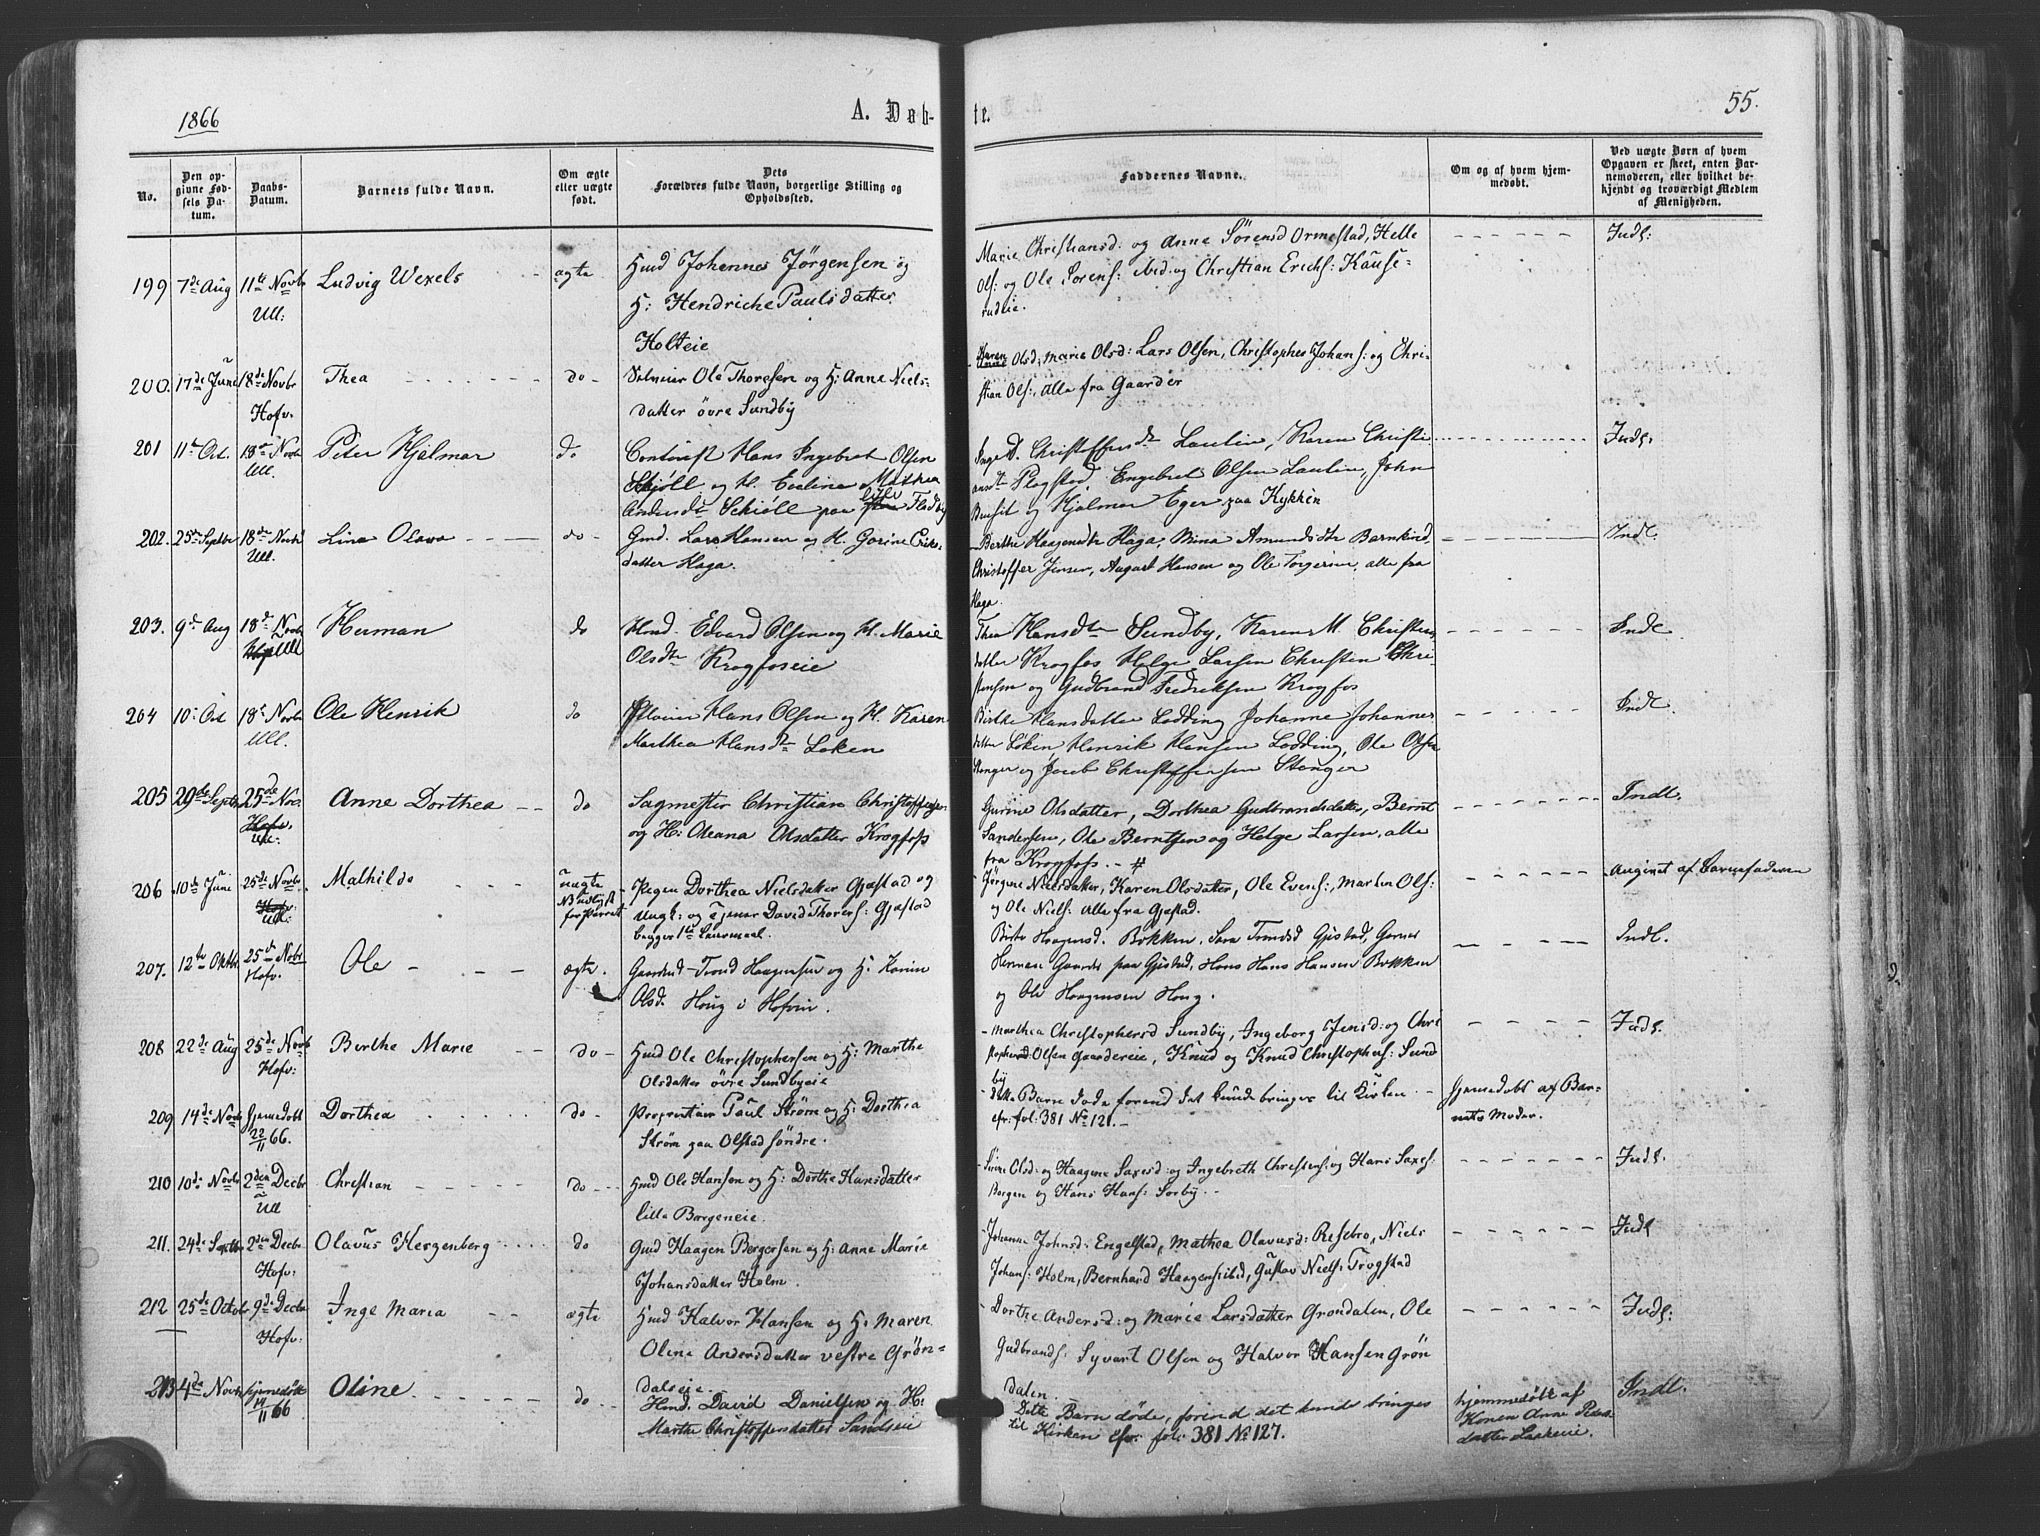 1866
A. Døbte.
55.
No.
Den opgivne Fødsels Datum.
Daabs-Datum.
Barnets fulde Navn.
Om ægte eller uægte født.
Dets Forældres fulde Navn, borgerlige Stilling og Opholdssted.
Faddernes Navne.
Om og af hvem hjemmedøbt.
Ved uægte Børn af hvem Opgaven er skeet, enten Barnemoderen, eller hvilket bekjendt og troværdigt Medlem af Menigheden.
199 7de Aug 11te Novbr Ludvig Wexels ægte Hmd Johannes Jörgensen og
Ull: H: Hendriche Paulsdatter
Holteie
Marie Christiansd: og Anne Sörensd Ormestad, Helle Indl:
Ols: og Ole Sorens: ibid: og Christian Erichs: Kause-
rudeie.
200. 17de June 18de Novbr Thea do Ole Thoresen og H: Anne Niels-
Hofv. datter övre Sundby
Karen Olsd; Marie Olsd: Lars Olsen, Christopher Johans: og Chri-
stian Ols:, alle fra Gaarder
201 11te Oct. 18de Novbr Peter Hjalmar do Hans Ingebret Olsen
Ull. Skjöll og H. Evelina Mathea
Andersdtr Schiöll paa lille Fladby
Inge D. Christoffersdtr Laulin, Karen Christi Indl:
ansdtr Plogstad, Engebret Olsen Laulin, John
og Hjalmar Eger paa Kykken
202. 25de Septbr 18de Novbr Lina Olava do Gmd. Lars Hansen og H. Gorine Eriks-
Ull. datter Haga.
Berthe Haagensdtr Haga, Mina Amundsdtr Barnkind, Indl.
Christoffer Jensen, August Hansen og Ole Torgersen, alle fra
Haga.
203. 9de Aug 18de Novbr Herman do Hmd. Edvard Olsen og H. Marie
Ull Olsdtr Krogfoseie
Thea Hansdtr Sundby, Karen M. Christens Indl.
datter Krogfos Helge Larsen Christen Chri-
stensen og Gudbrand Fredriksen Krogfos
204 10. Oct 18de Novbr Ole Henrik do Hans Olsen og H. Karen
Ull. Marthea Hansdtr Løken
Birthe Hansdatter Lødding Johanne Johannes Indl.
datter Løken Henrik Hansen Lødding, Ole Olsen
Stenger og Jacob Christoffersen Stenger
205 29de Septbr 25de Nov. Anne Dorthea do Sagmester Christian Christoffersen
Hofv. Ull: og H: Oleana Olsdatter Krogfoss
Gurine Olsdatter, Dorthea Gudbrandsdatter, Bernt Indl.
Sandersen, Ole Berntsen og Helge Larsen, alle
fra Krogfoss. - #
206 10de June 25de Novbr Mathilde uægte Pigen Dorthea Nielsdatter Gjæstad og
Hofv: Ull: Ungk: og Tjener David Thorers: Gjæstad
begges 1ste Leiermaal.
Jørgine Nielsdatter, Karen Olsdatter, Ole Evens:, Marten Ols: Angivet af Barnefaderen
og Ole Niels: alle fra Gjæstad.
207. 12te Oktbr 25de Novbr Ole ægte. Gaardmd Trond Haagensen og H. Karen
Hofv. Olsd. Houg i Hofvin.
Birte Haagensd. Bokken, Sara Trondsd Gjestad, Indl.
Herman Gaarder paa Gjestad, Hans Hansen Bokken
og Ole Haagensen Houg.
208 22de Aug 25de Novb Berthe Marie do Hmd Ole Christophersen og H: Marthe
Hofv: Olsdatter övre Sundbyeie
Marthea Christophersd Sundby, Ingeborg Jensd: og Chri Indl.
stopher Olsen Gaardereie, Knud og Knud Christophers: Sund
by
209 14de Novb Hjemedöbt Dorthea do Proprietair Paul Ström og H: Dorthea
22/11 66. Ström paa Olstad söndre.
dette Barn döde forend det kunde bringes til Kirken Hjemedöbt af Bar-
cfr. fol: 381 No 121. - nets Moder.
210 10de Novbr 2den Decbr Christian do Hmd Ole Hansen og H: Dorthe Hansdatter
Ull lille Borgeneie.
Olsd: og Haagene Saxesd: og Ingebreth Christens: og Hans Saxes: Indl.
Borgen og Hans Hans: Sorby.
211. 24de Septbr 2den Decbr Olavus Herzenberg do Gmd Haagen Bergersen og H: Anne Marie
Hofv: Johansdatter Holm.
Johanne Johnsd: Engelstad, Mathea Olavusd: Resebro, Niels Indl
Johans: Holm, Bernhard Haagens: ibid, Gustav Niels: Trogstad
212 25de Octobr 9de Decbr Inge Maria ægte Hmd Halvor Hansen og H: Maren
Hofv: Oline Andersdatter vestre Grøn-
dalseie.
Dorthe Andersd: og Marie Larsdatter Grøndalen, Ole Indl:
Gudbrands: Syvart Olsen og Halvor Hansen Grön
dalen.
213 4de Novbr hjemedöbt Oline do Hmd. David Danielsen og H:
11/11 66 Marthe Christoffersdatter Sandseie
Dette Barn døde, forend det kunde bringes hjemmedøbt af Indl.
til Kirken cfr. fol. 381 No 127. Konen Anne Peders
datter